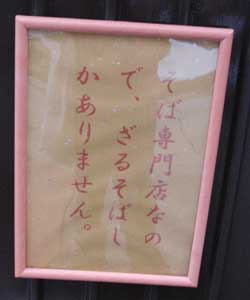 そば専門店なの
で、ざるそばし
かありません。